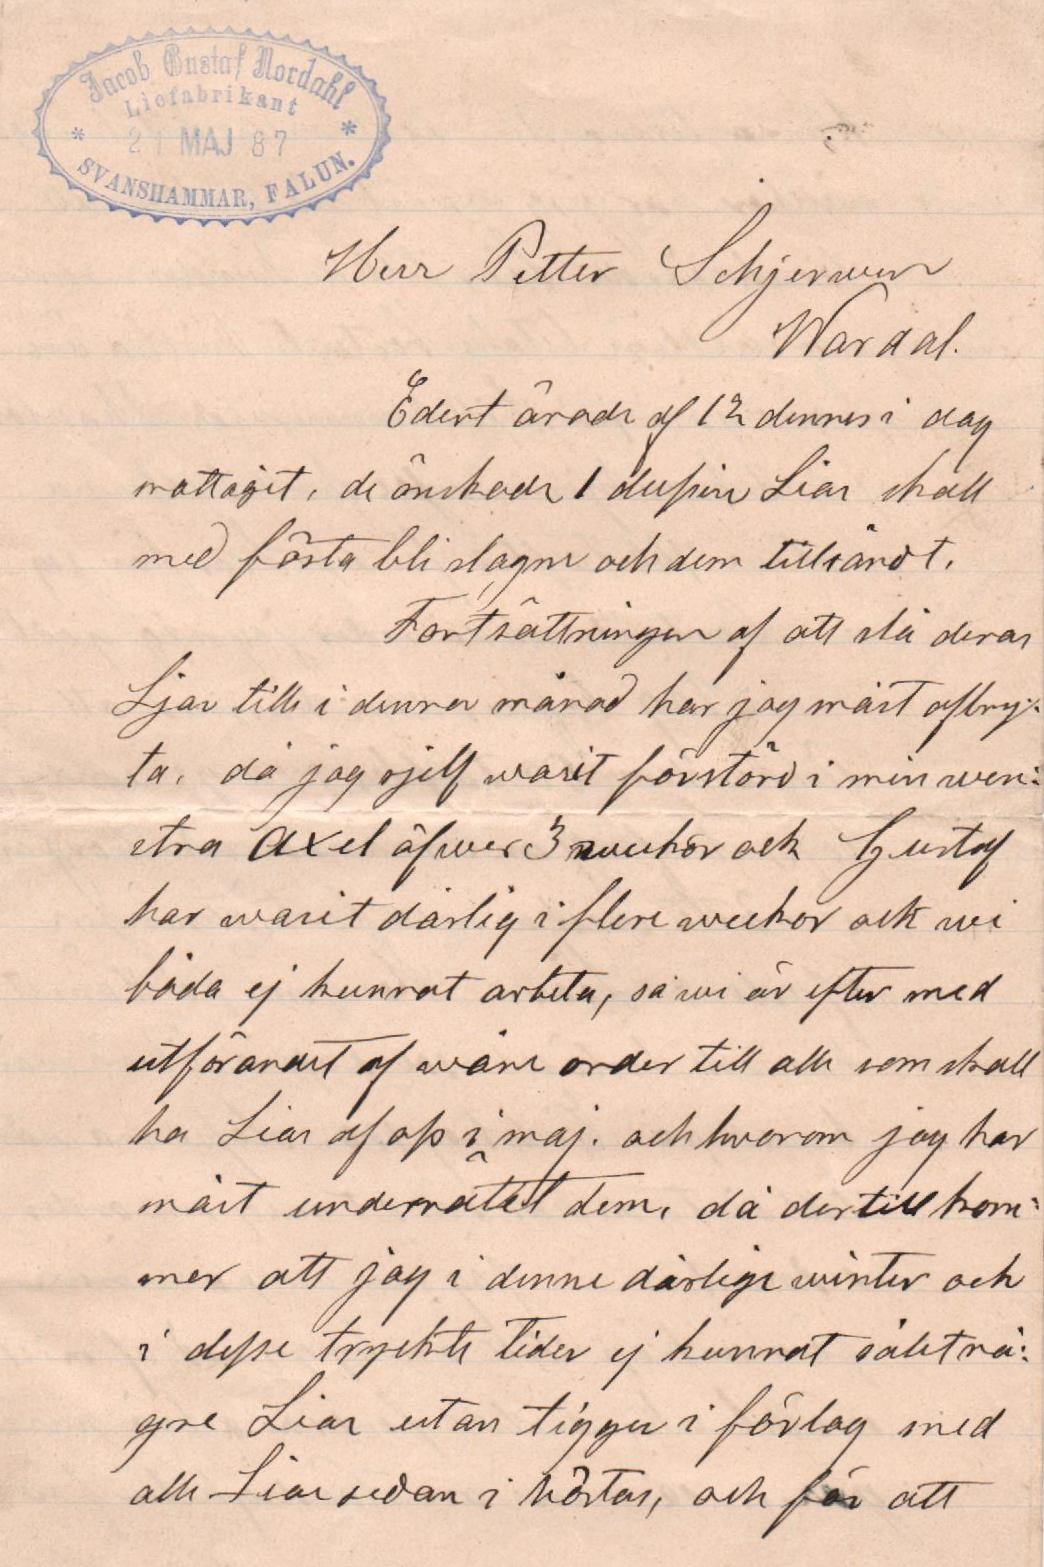 Jacob Gustaf Nordahl
Liefabrikant
* 21 MAJ 87 *
SVANSHAMMAR, FALUN.
Herr Petter Schjerwen
Wardal.
Edert ärade af 12 dennes i dag
mottagit, de önskade 1 dussin Liar skall
med första bli slagne och dem tillsändt.
Fortsättningen af att slå deras
Ljar till i denna månad har jag måst afbry-
ta, då jag sjelf warit förstörd i min wen-
stra Axel öfwer 3 weckor ock Gustaf
har warit dårlig i flere weckor ock wi
båda ej kunnat arbeta, så wi är efter med
utförandet af våre order till alle som skall
ha Liar af oss i maj. och hvarom jag har
måst underrätat dem, då dertill kom-
mer att jag i denne dårlige winter och
i desse tryckte tider ej kunnat sålt nå-
gre Liar utan tigger i förlag med
alle Liar sedan i höstas, och för att